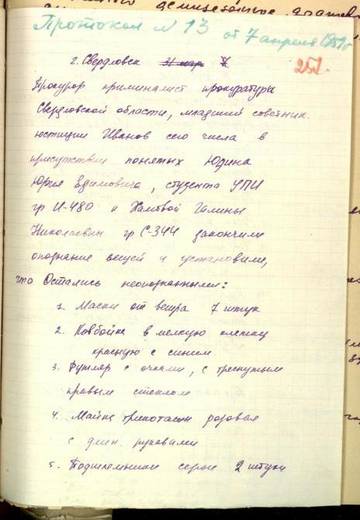 Протокол № 13 от 7 апреля 1959 г
252.
г. Свердловск
Прокурор криминалист прокуратуры
Свердловской области, младший советник
юстиции Иванов сего числа в
присутствии понятых Юдина
Юрия Ефимовича, студента УПИ
гр И-480 и Халтвой Галины
Николаевны гр С-344 закончили
опознание вещей и установили,
что Остались неопознанными:
1. Маски от ветра 7 штук
2. Ковбойка в мелкую клетку
красную с синим
3. Футляр с очками, с треснутым
правым стеклом
4. Майка трикотажн розовая
с длин. рукавами
5. Подшлемники серые 2 штуки